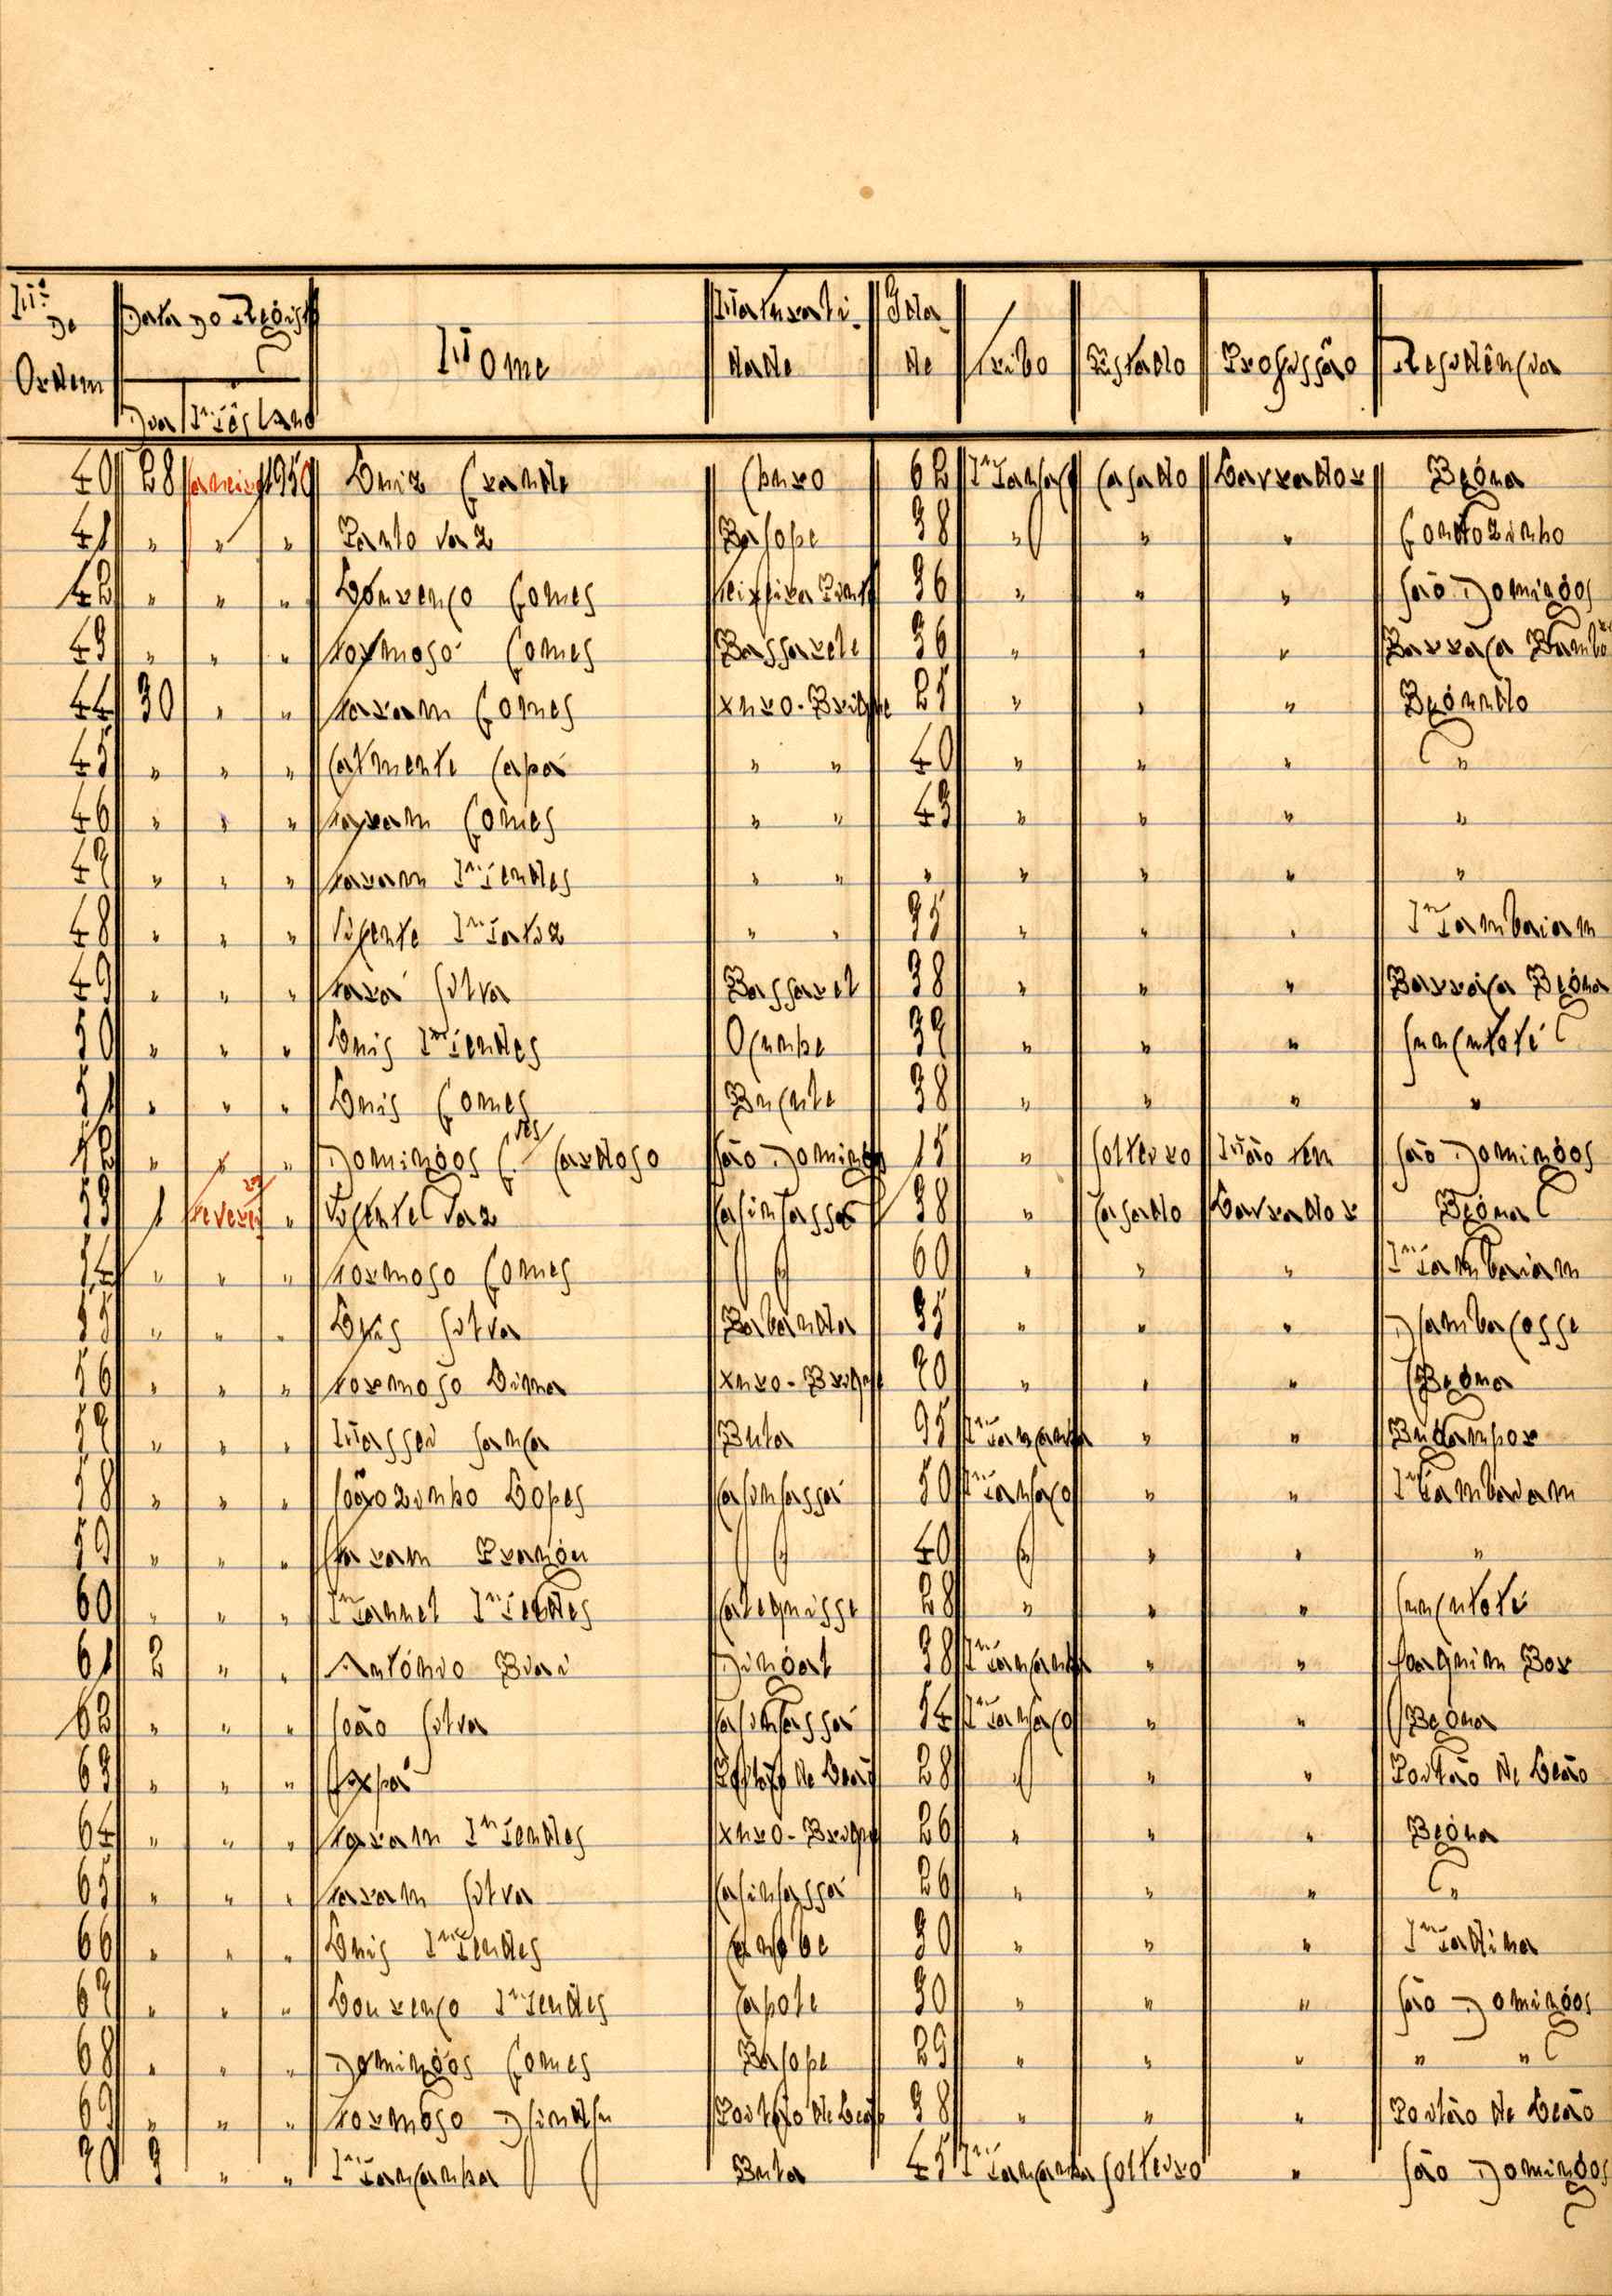 Nº de Ordem | Data do Regist | Nome | Naturali-dade | Ida-de | Tribo | Estado | Profissão | Residência
Dia | Mês | Ano
40 28 Janeiro 1950 Luiz Grande Churo 62 Mansaco Casado Lavrador Begna
41 " " " Paulo Vaz Basope 38 " " " Gontozinho
42 " " " Lourenço Gomes 36 " " " São Domingos
43 " " " Formoso Gomes Bassarele 36 " " " Barraca Bambú
44 30 " " Faram Gomes Xuro-Brique 25 " " "
45 " " " Calmente Capá " " 40 " " " "
46 " " " Faram Gomes " " 43 " " " "
47 " " " Faram Mendes " " " " " " "
48 " " " Vicente Matiz " " 35 " " " Mambaiam
49 " " " Fará Silva Bassarel 38 " " " Barraca Begna
50 " " " Luis Mendes Ocunpe 37 " " " Suncutoté
51 " " " Luis Gomes Bucule 38 " " " "
52 " " " Domingos G.es Cardoso São Domingos 15 " Solteiro Não tem São Domingos
53 1 Fevereiro " Vicente Vaz Casinhassa 38 " Casado Lavrador Begna
54 " " " Formoso Gomes " 60 " " " Mambaiam
55 " " " Luis Silva Babanda 35 " " " Djambacosse
56 " " " Formoso Lima Xuro-Brique 70 " " " Begna
57 " " " Nassen Sanca Bula 35 Mancanha " "
58 " " " Joãozinho Lopes Casinhassá 50 Mansaco " " Mambaiam
59 " " " Faram " 40 " " " "
60 " " " Manuel Mendes Calequisse 28 " " " Suncutoté
61 2 " " António Biai Dingal 38 Mancanha " " Joaquim Bor
62 " " " João Silva Casinhassá 54 Mansaco " " Begna
63 " " " Portão de Leão 28 " " " Portão de Leão
64 " " " Faram Mendes Xuro-Brique 26 " " " Begna
65 " " " Faram Silva Casinhassá 26 " " " "
66 " " " Luis Mendes 30 " " " Madina
67 " " " Lourenço Mendes Capole 30 " " " São Domingos
68 " " " Domingos Gomes Basope 29 " " " " "
69 " " " Formoso Djindju Portão de Leão 38 " " " Portão de Leão
70 3 " " Mancanha Bula 45 Mancanha Solteiro " São Domingos